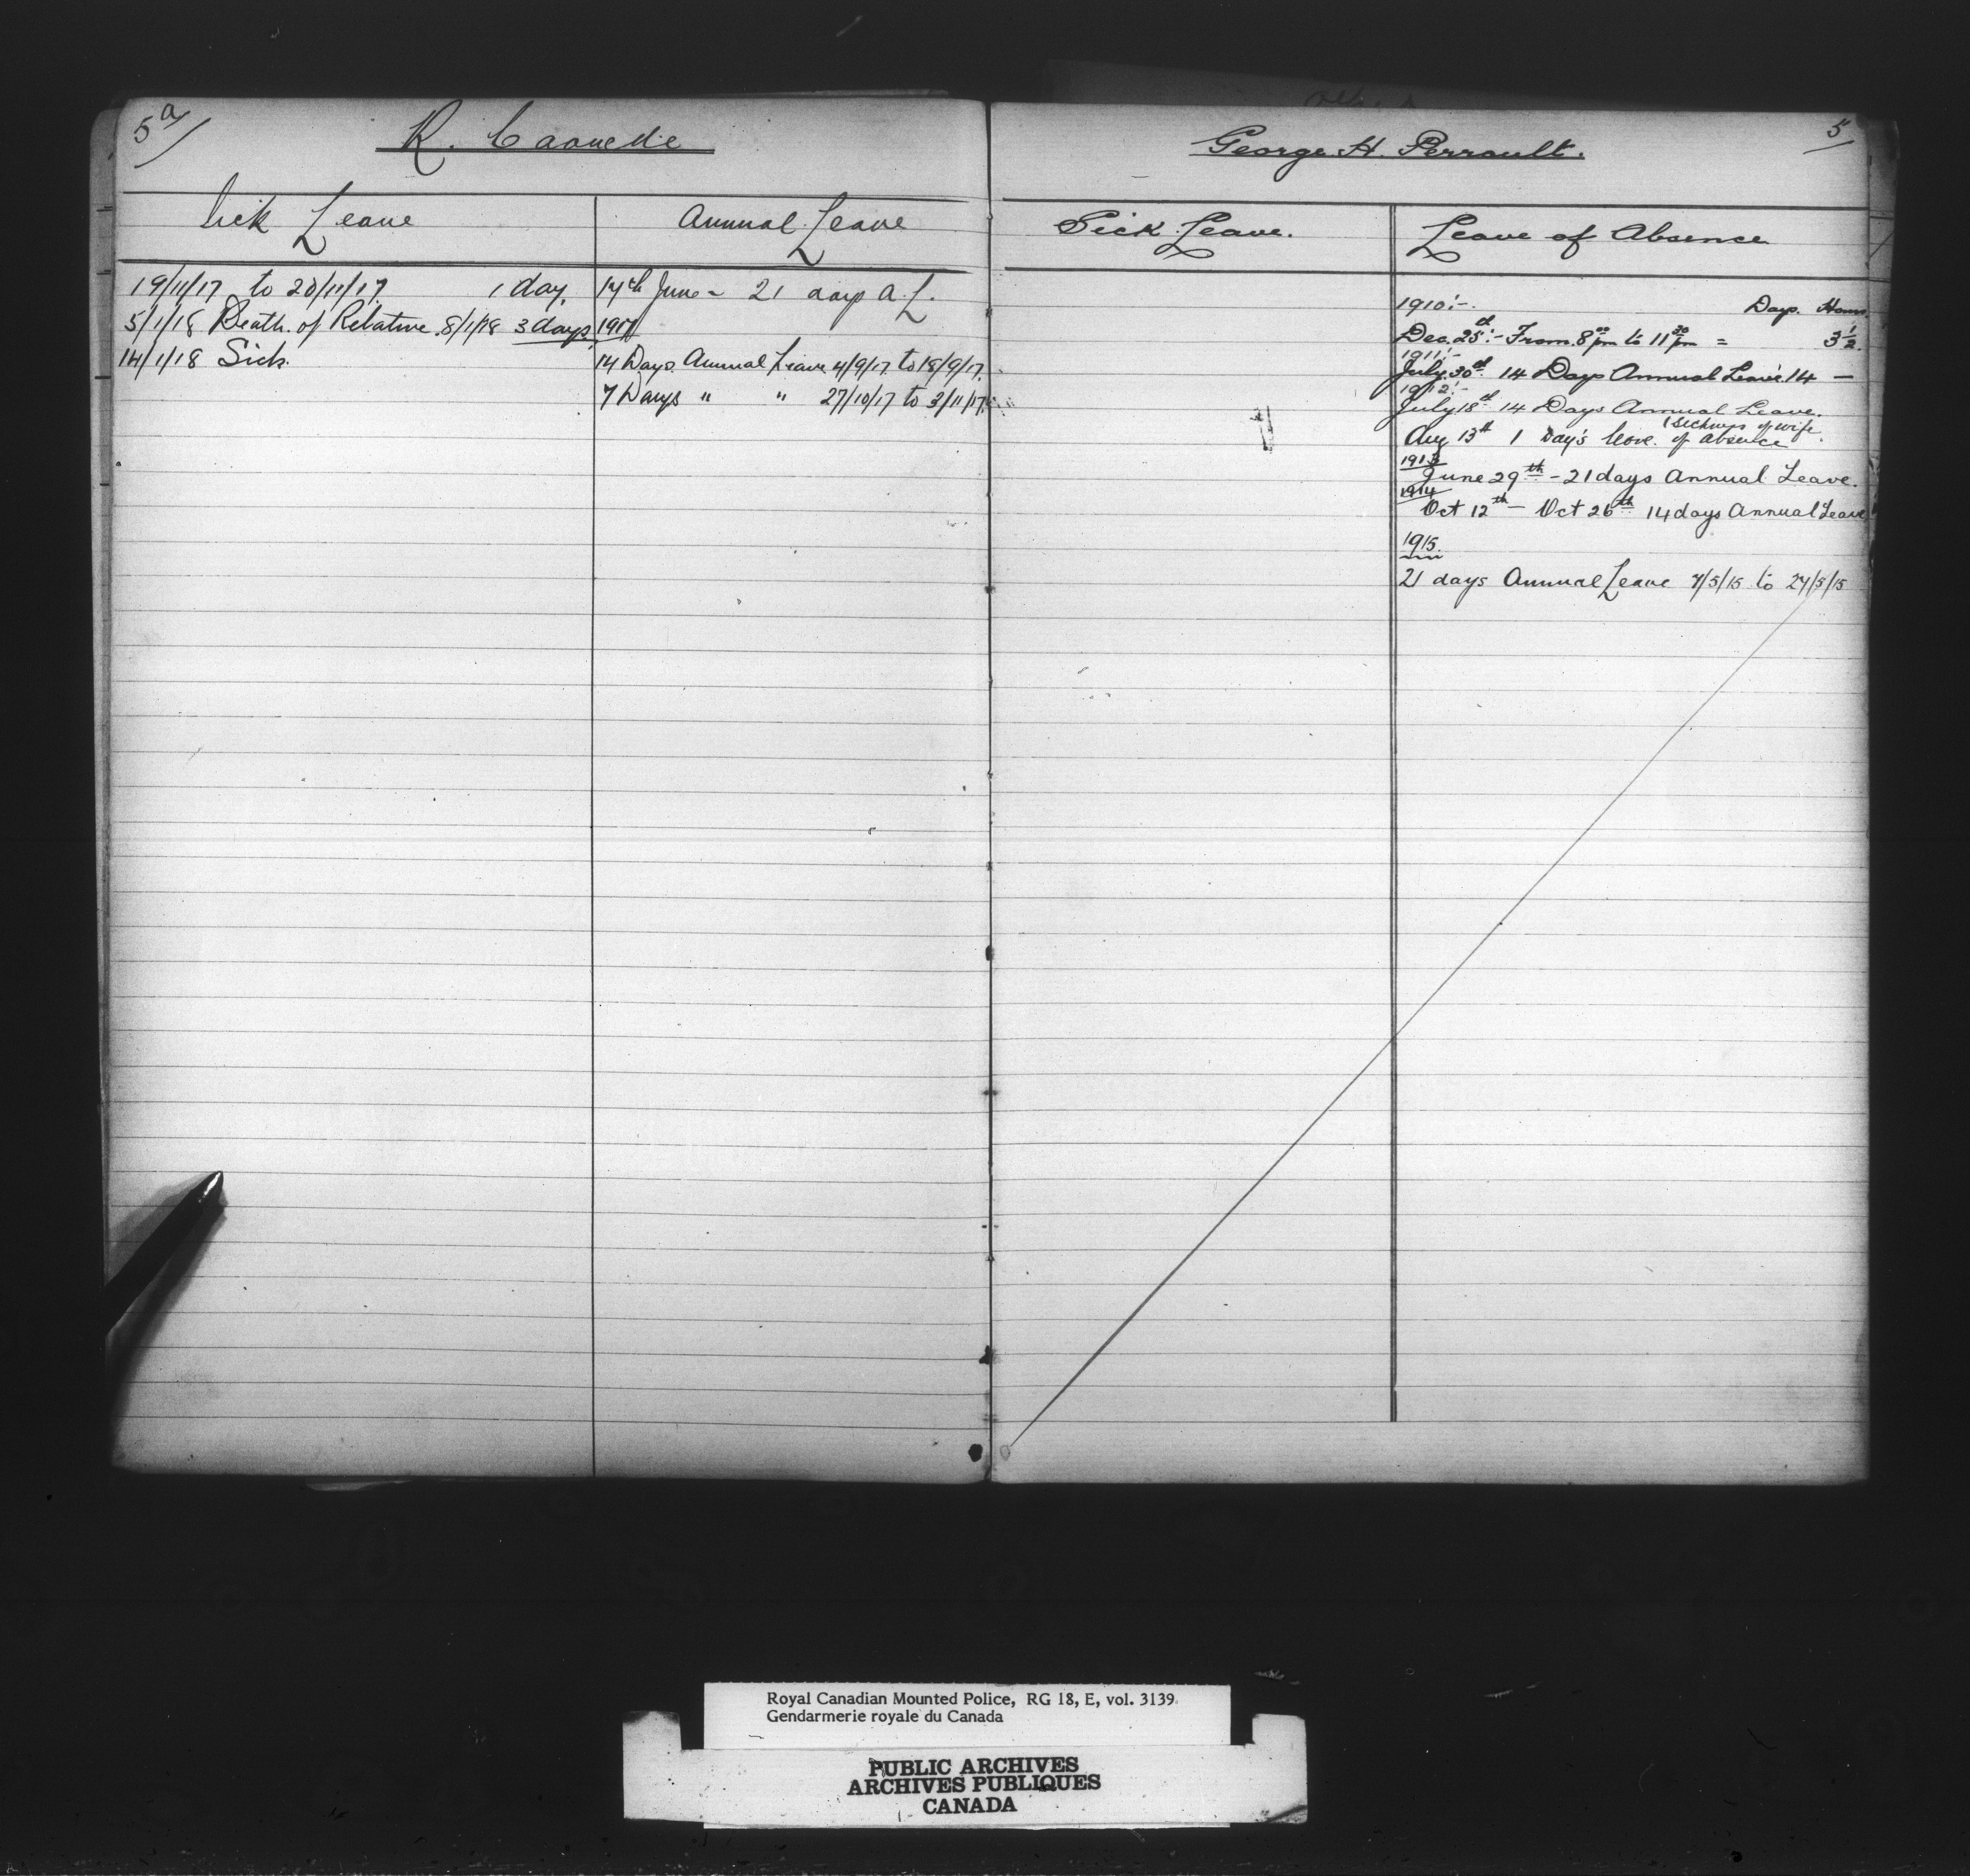 5a/
R. Caouette
Sick Leave
Annual Leave
19/11/17 to 20/11/17. 1 day.
5/1/18 Death of Relative. 8/1/18 3 days.
14/1/18 Sick.
14th June - 21 days A.L.
1917
14 Days Annual Leave 4/9/17 to 18/9/17.
7 Days " " 27/10/17 to 3/11/17.
5
George H. Perrault.
Sick Leave.
Leave of Absence
1910:- Days. Hours.
Dec. 25th:- From 8 00 pm to 11 30 pm = 3 1/2.
1911:-
July 30th. 14 Days Annual Leave. 14 —
1912:-
July 18th 14 Days Annual Leave.
(Sickness of wife.
Aug 13th 1 Day's leave of absence
1913
June 29th - 21 days Annual Leave.
1914
Oct 12th - Oct 26th 14 days Annual Leave
1915.
21 days Annual Leave 7/5/15 to 27/5/15
Royal Canadian Mounted Police, RG 18, E, vol. 3139.
Gendarmerie royale du Canada
PUBLIC ARCHIVES
ARCHIVES PUBLIQUES
CANADA